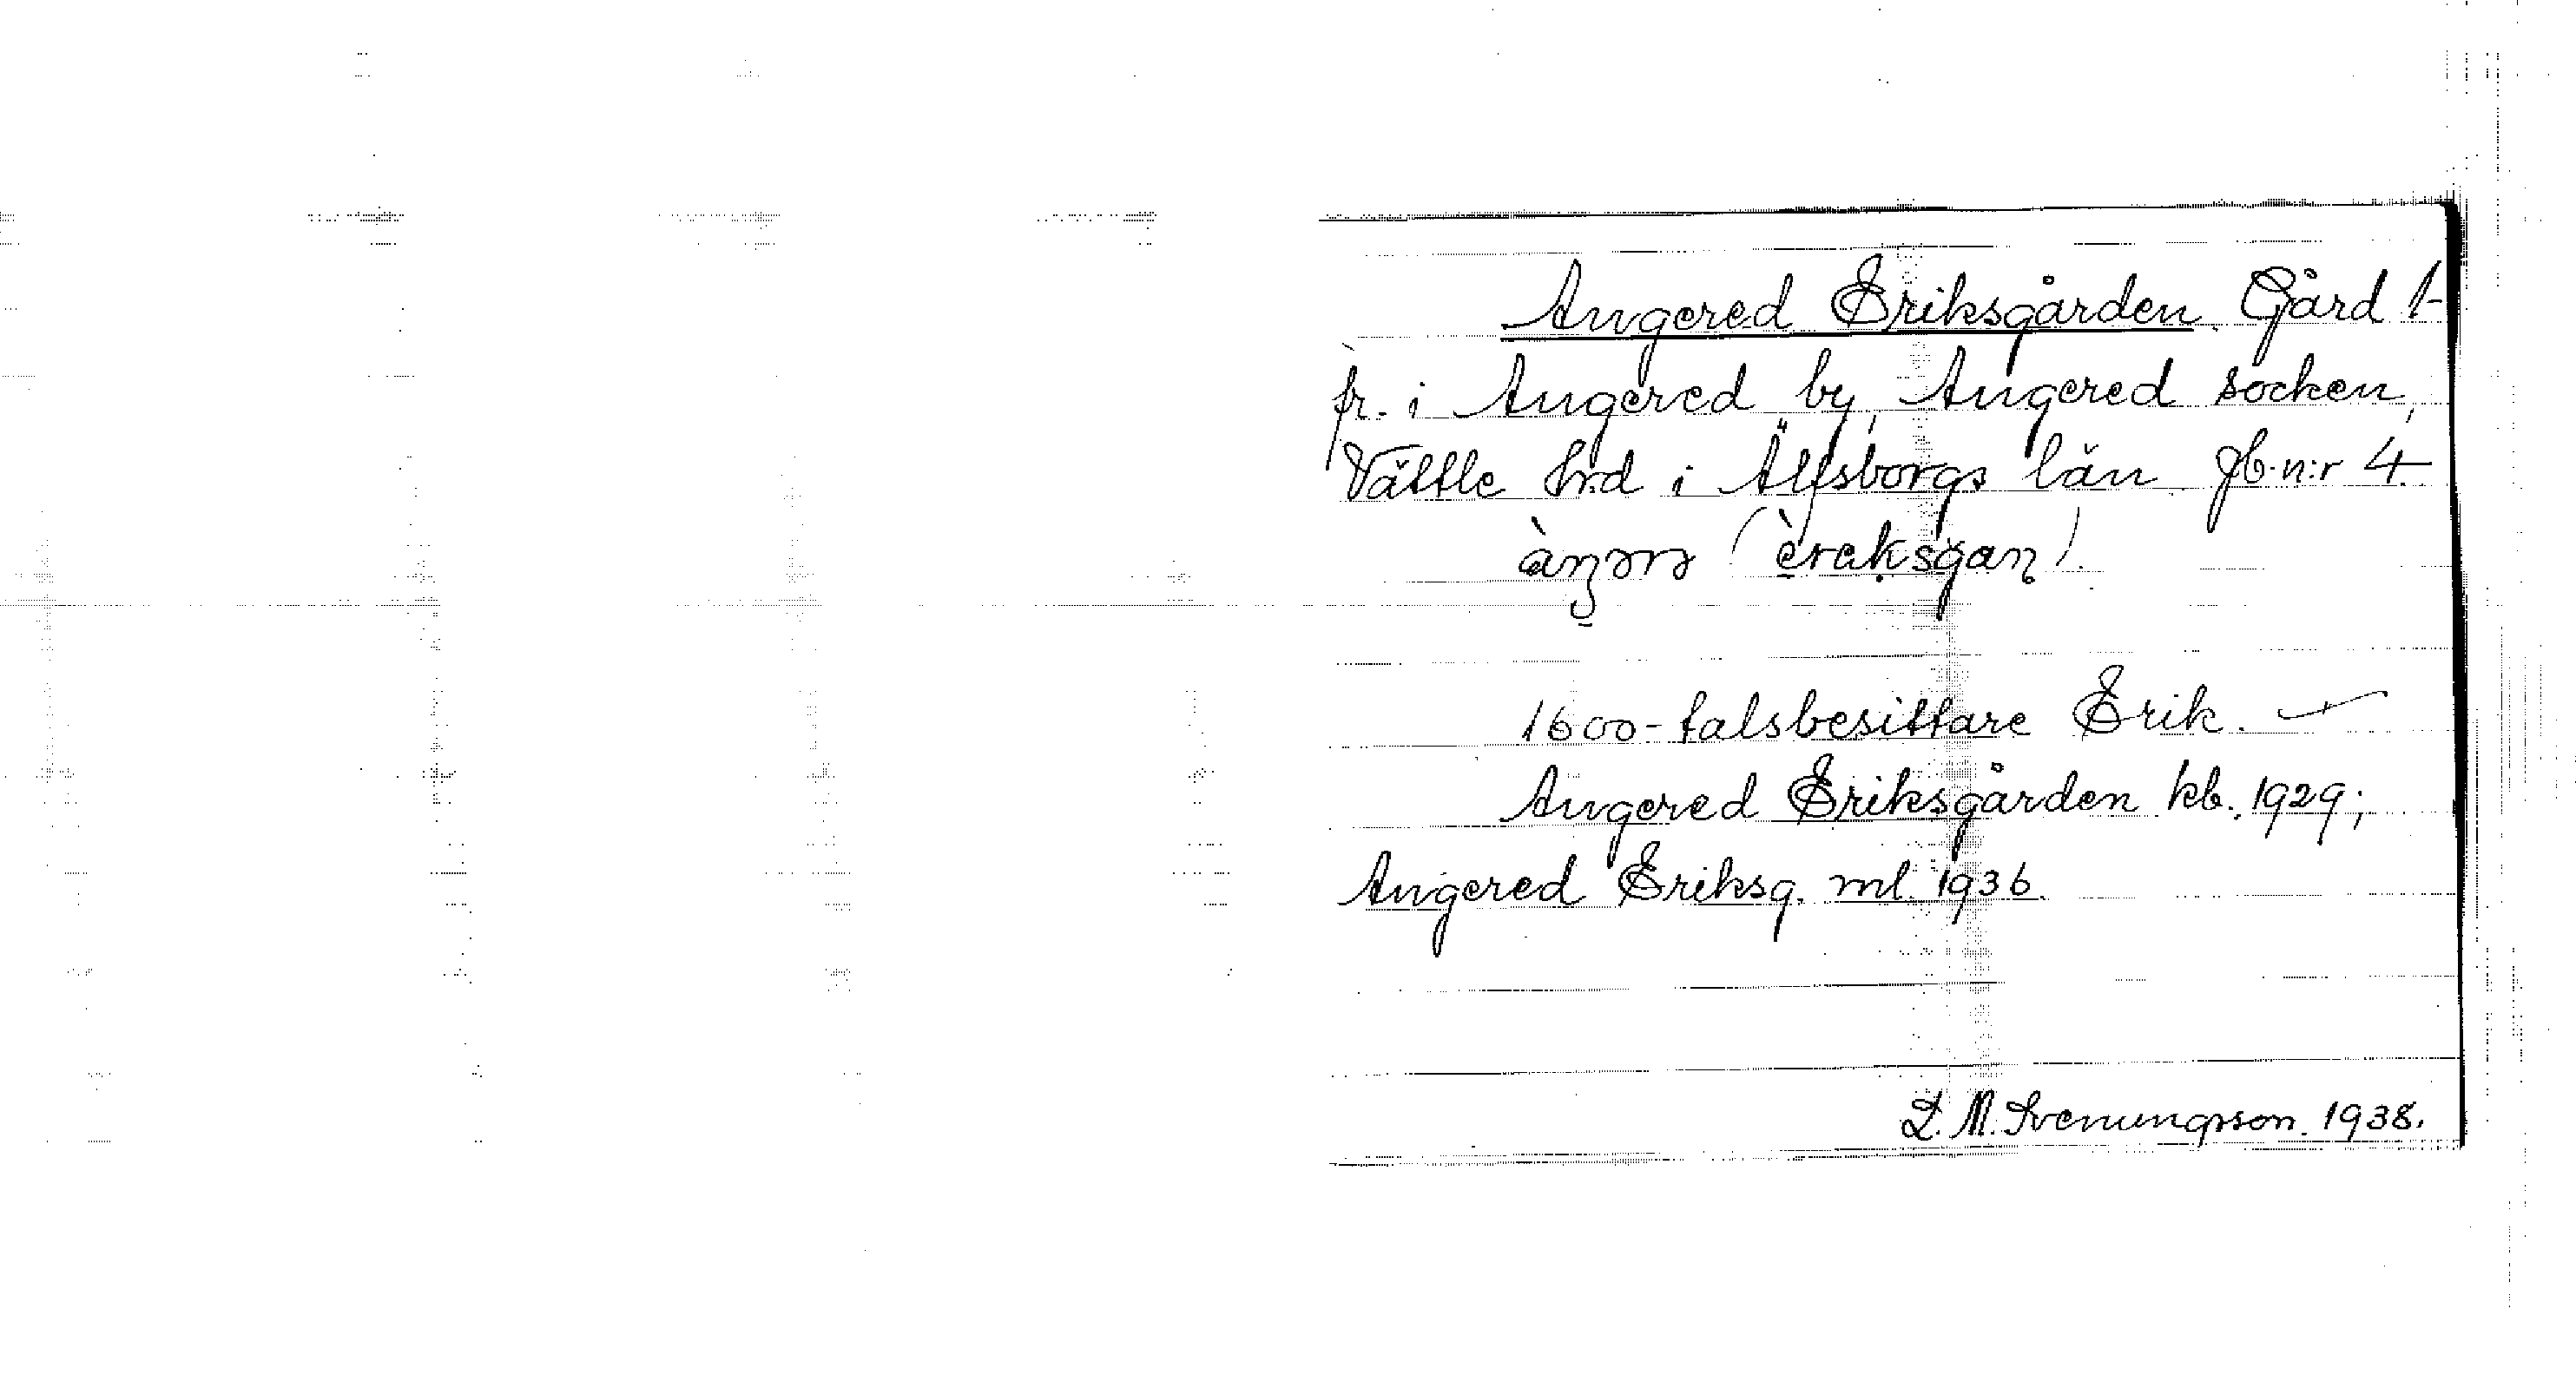 Angered Eriksgården. Gård 1
fr. i Angered by, Angered socken,
Vättle hrd i Älfsborgs län. Jb. n:r 4.
1600-talsbesittare Erik.
Angered Eriksgården kb. 1929;
Angered Eriksg. ml. 1936.
L. M. Svenungsson. 1938.